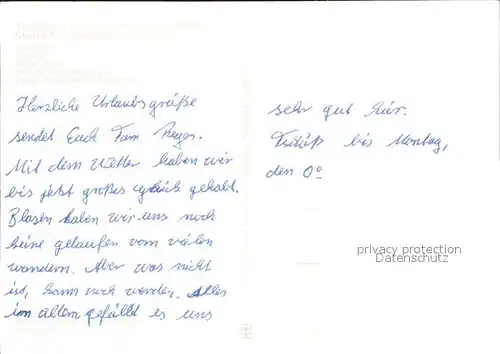 Herzliche Urlaubsgrüße
sendet Euch Fam.
Mit dem Wetter haben wir
bis jetzt großes Glück gehabt.
Blasen haben wir uns noch
keine gelaufen vom vielen
wandern. Aber was nicht
ist, kann noch werden. Alles
im allem gefällt es uns
sehr gut hier.
bis Montag,
den
privacy protection
Datenschutz